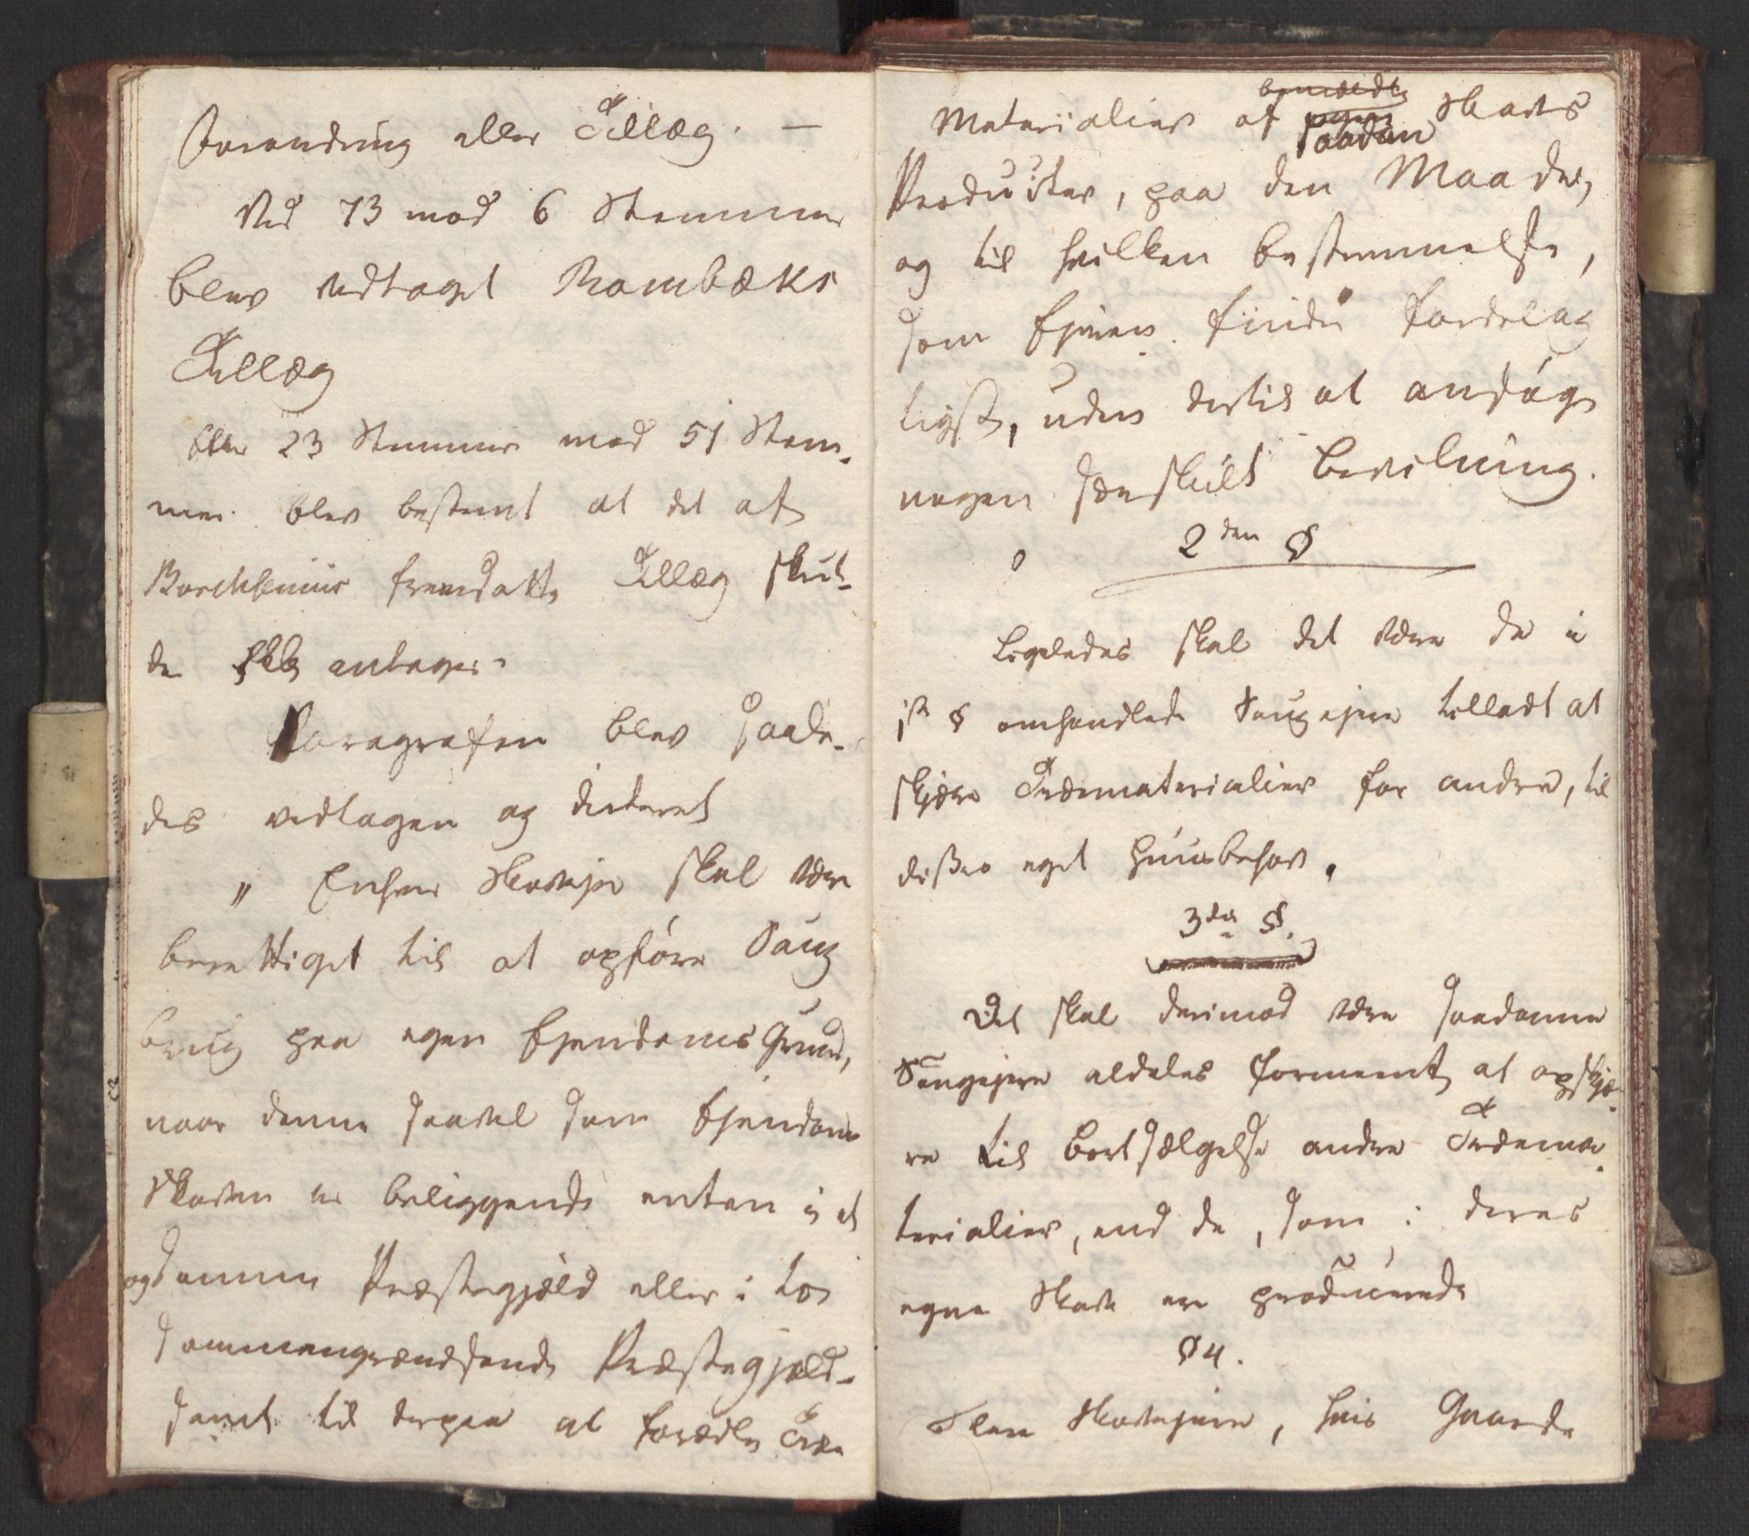 Forandring eller Tillæg. —
Ved 73 mod 6 Stemmer
blev vedtaget Rambæks
Tillæg
23 Stemmer mod 51 Stem-
mer blev bestemt at det af
Borchsenius fremsatte Tillæg skul-
de ikke antages.
Paragrafen blev saale-
des vedtagen og dicteret
„ Enhver Skovejer skal være
berettiget til at opføre Saug
brug paa egen Ejendoms Grund,
naar denne saavel som Ejendoms
Skoven er beliggende enten i et
og samme Præstegjæld eller i to
sammengrændsende Præstegjæld-
samt til derpaa at forædle Træ
Materialier af saadan Skovs
Producter, paa den Maade,
og til hvilken Bestemmelse,
som Ejeren finder fordelag
ligst, uden dertil at ansøge
nogen særskilt Bevilning.
2den §
Ligeledes skal det være de i
1ste § omhandlede Saugejere tilladt at
skjære Træematerialier for andre, til
disses eget Huusbehov.
3die §.
Det skal derimod være saadanne
Saugejere aldeles formeent at opskjæ-
re til Bortsælgelse andre Træema-
terialier, end de, som i deres
egne Skove ere producerede
§ 4.
Flere Skovejere, hvis Gaarde